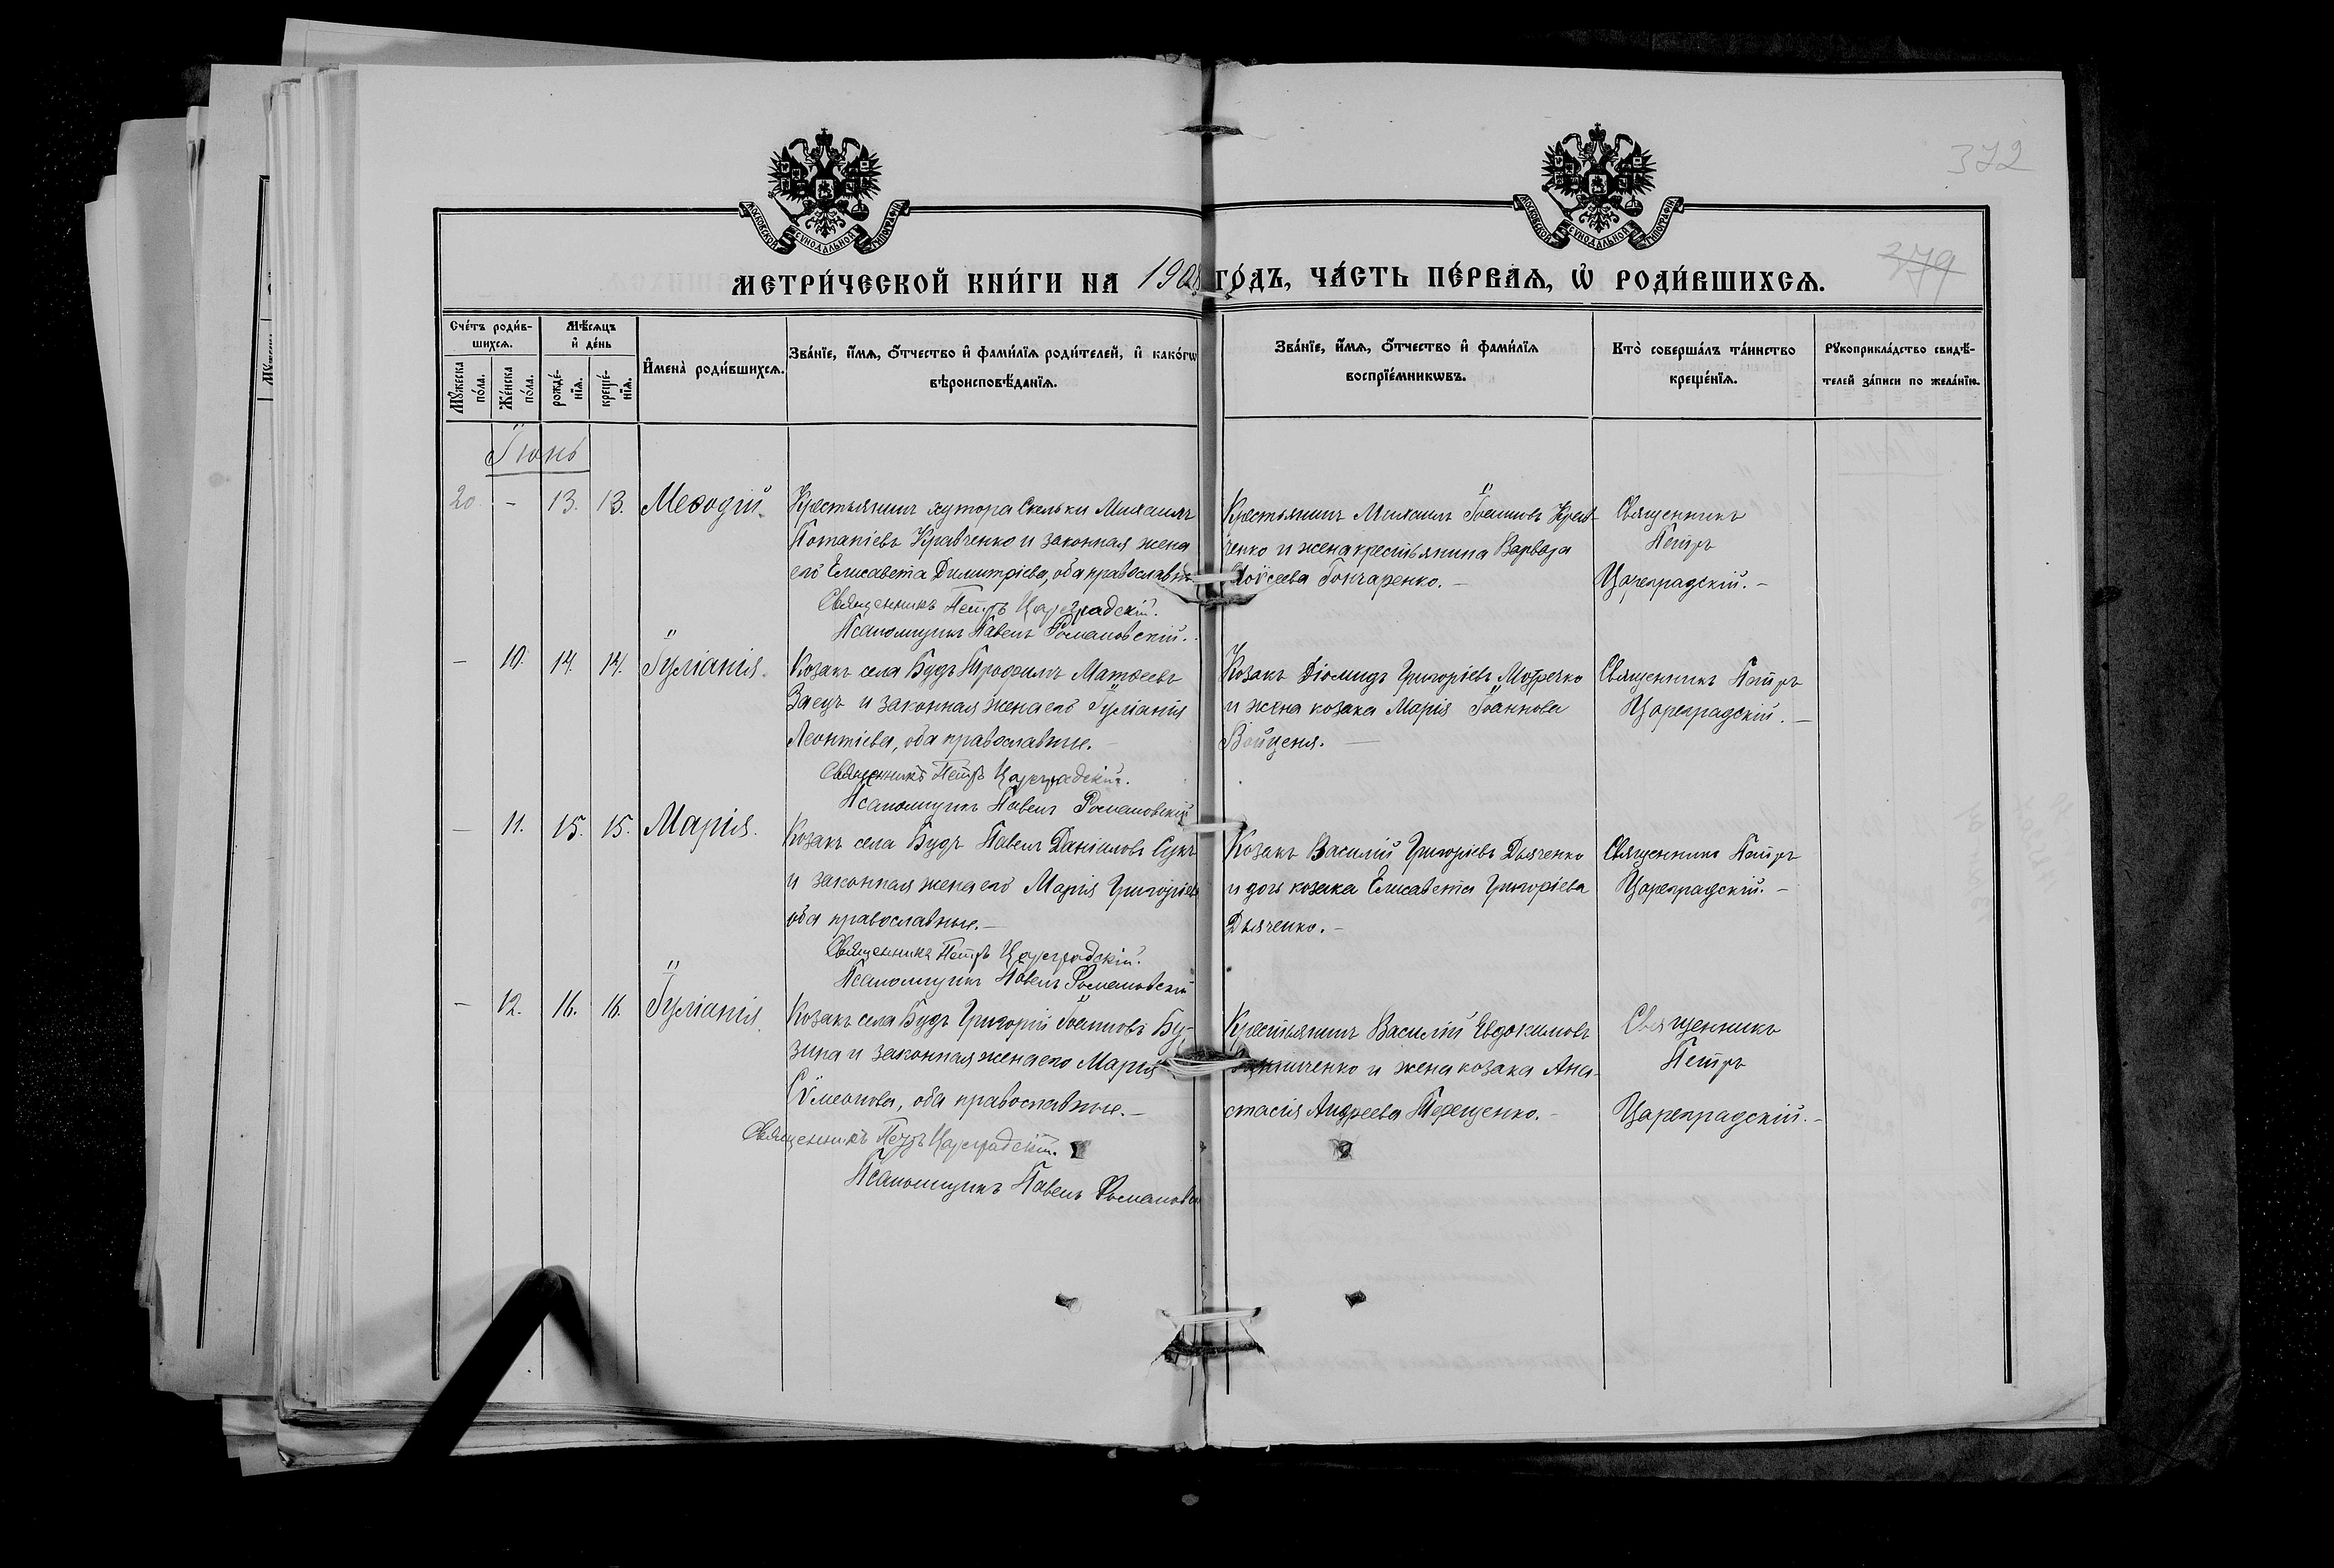 372
МОСКОВСКОЙ СУНОДАЛЬНОЙ ТИПОГРАФІИ
МОСКОВСКОЙ СУНОДАЛЬНОЙ ТИПОГРАФІИ
379
МЕТРИ́ЧЕСКОЙ КНИ́ГИ НА 1908 ГО́ДЪ, ЧА́СТЬ ПЕ́РВАЯ, Ѡ҆ РОДИ́ВШИХСѦ.
Сче́тъ роди́в-
шихсѧ.
Мꙋ́жеска по́ла.
Же́нска по́ла.
Мѣ́сѧцъ
и҆ де́нь
рожде́-
нїѧ.
креще́-
нїѧ.
И҆мена̀ роди́вшихсѧ.
Зва́нїе, и҆́мѧ, ѻ҆́тчество и҆ фами́лїѧ роди́телей, и҆ како́гѡ
вѣроисповѣ́данїѧ.
Зва́нїе, и҆́мѧ, ѻ҆́тчество и҆ фами́лїѧ
воспрїе́мникѡвъ.
Кто̀ соверша́лъ та́инство
креще́нїѧ.
Рꙋкоприкла́дство свидѣ́-
телей за́писи по жела́нїю.
Іюнь
20. - 13. 13. Меѳодій.
Крестьянинъ хутора Скельки Михаилъ
Потапіевъ Кравченко и законная жена
его Елисавета Димитріева, оба православные
Священникъ Петръ Цареградскій.
Псаломщикъ Павелъ Романовскій.
Крестьянинъ Михаилъ Іоанновъ Крав-
ченко и жена крестьянина Варвара
Моѵсеева Гончаренко. -
Священникъ
Петръ
Цареградскій. -
- 10. 14. 14. Іуліанія.
Козакъ села Будъ Трофимъ Матѳеевъ
Заецъ и законная жена его Іуліанія
Леонтіева, оба православные.
Священникъ Петръ Цареградскій.
Псаломщикъ Павелъ Романовскій
Козакъ Діомидъ Григоріевъ
и жена козака Марія Іоаннова
Войценя. -
Священникъ Петръ
Цареградскій. -
- 11. 15. 15. Марія.
Козакъ села Будъ Павелъ Даніиловъ Сукъ
и законная жена его Марія Григоріева
оба православные. -
Священникъ Петръ Цареградскій.
Псаломщикъ Павелъ Романовскій
Козакъ Василій Григоріевъ Дьяченко
и дочь козака Елисавета Григоріева
Дьяченко. -
Священникъ Петръ
Цареградскій. -
- 12. 16. 16. Іуліанія.
Козакъ села Будъ Григорій Іоанновъ Бу-
зина и законная жена его Марія
Сѵмеонова, оба православные. -
Священникъ Петръ Цареградскій.
Псаломщикъ Павелъ Романовскій
Крестьянинъ Василій Евдокимовъ
и жена козака Ана-
стасія Андреева Терещенко. -
Священникъ
Петръ
Цареградскій. -